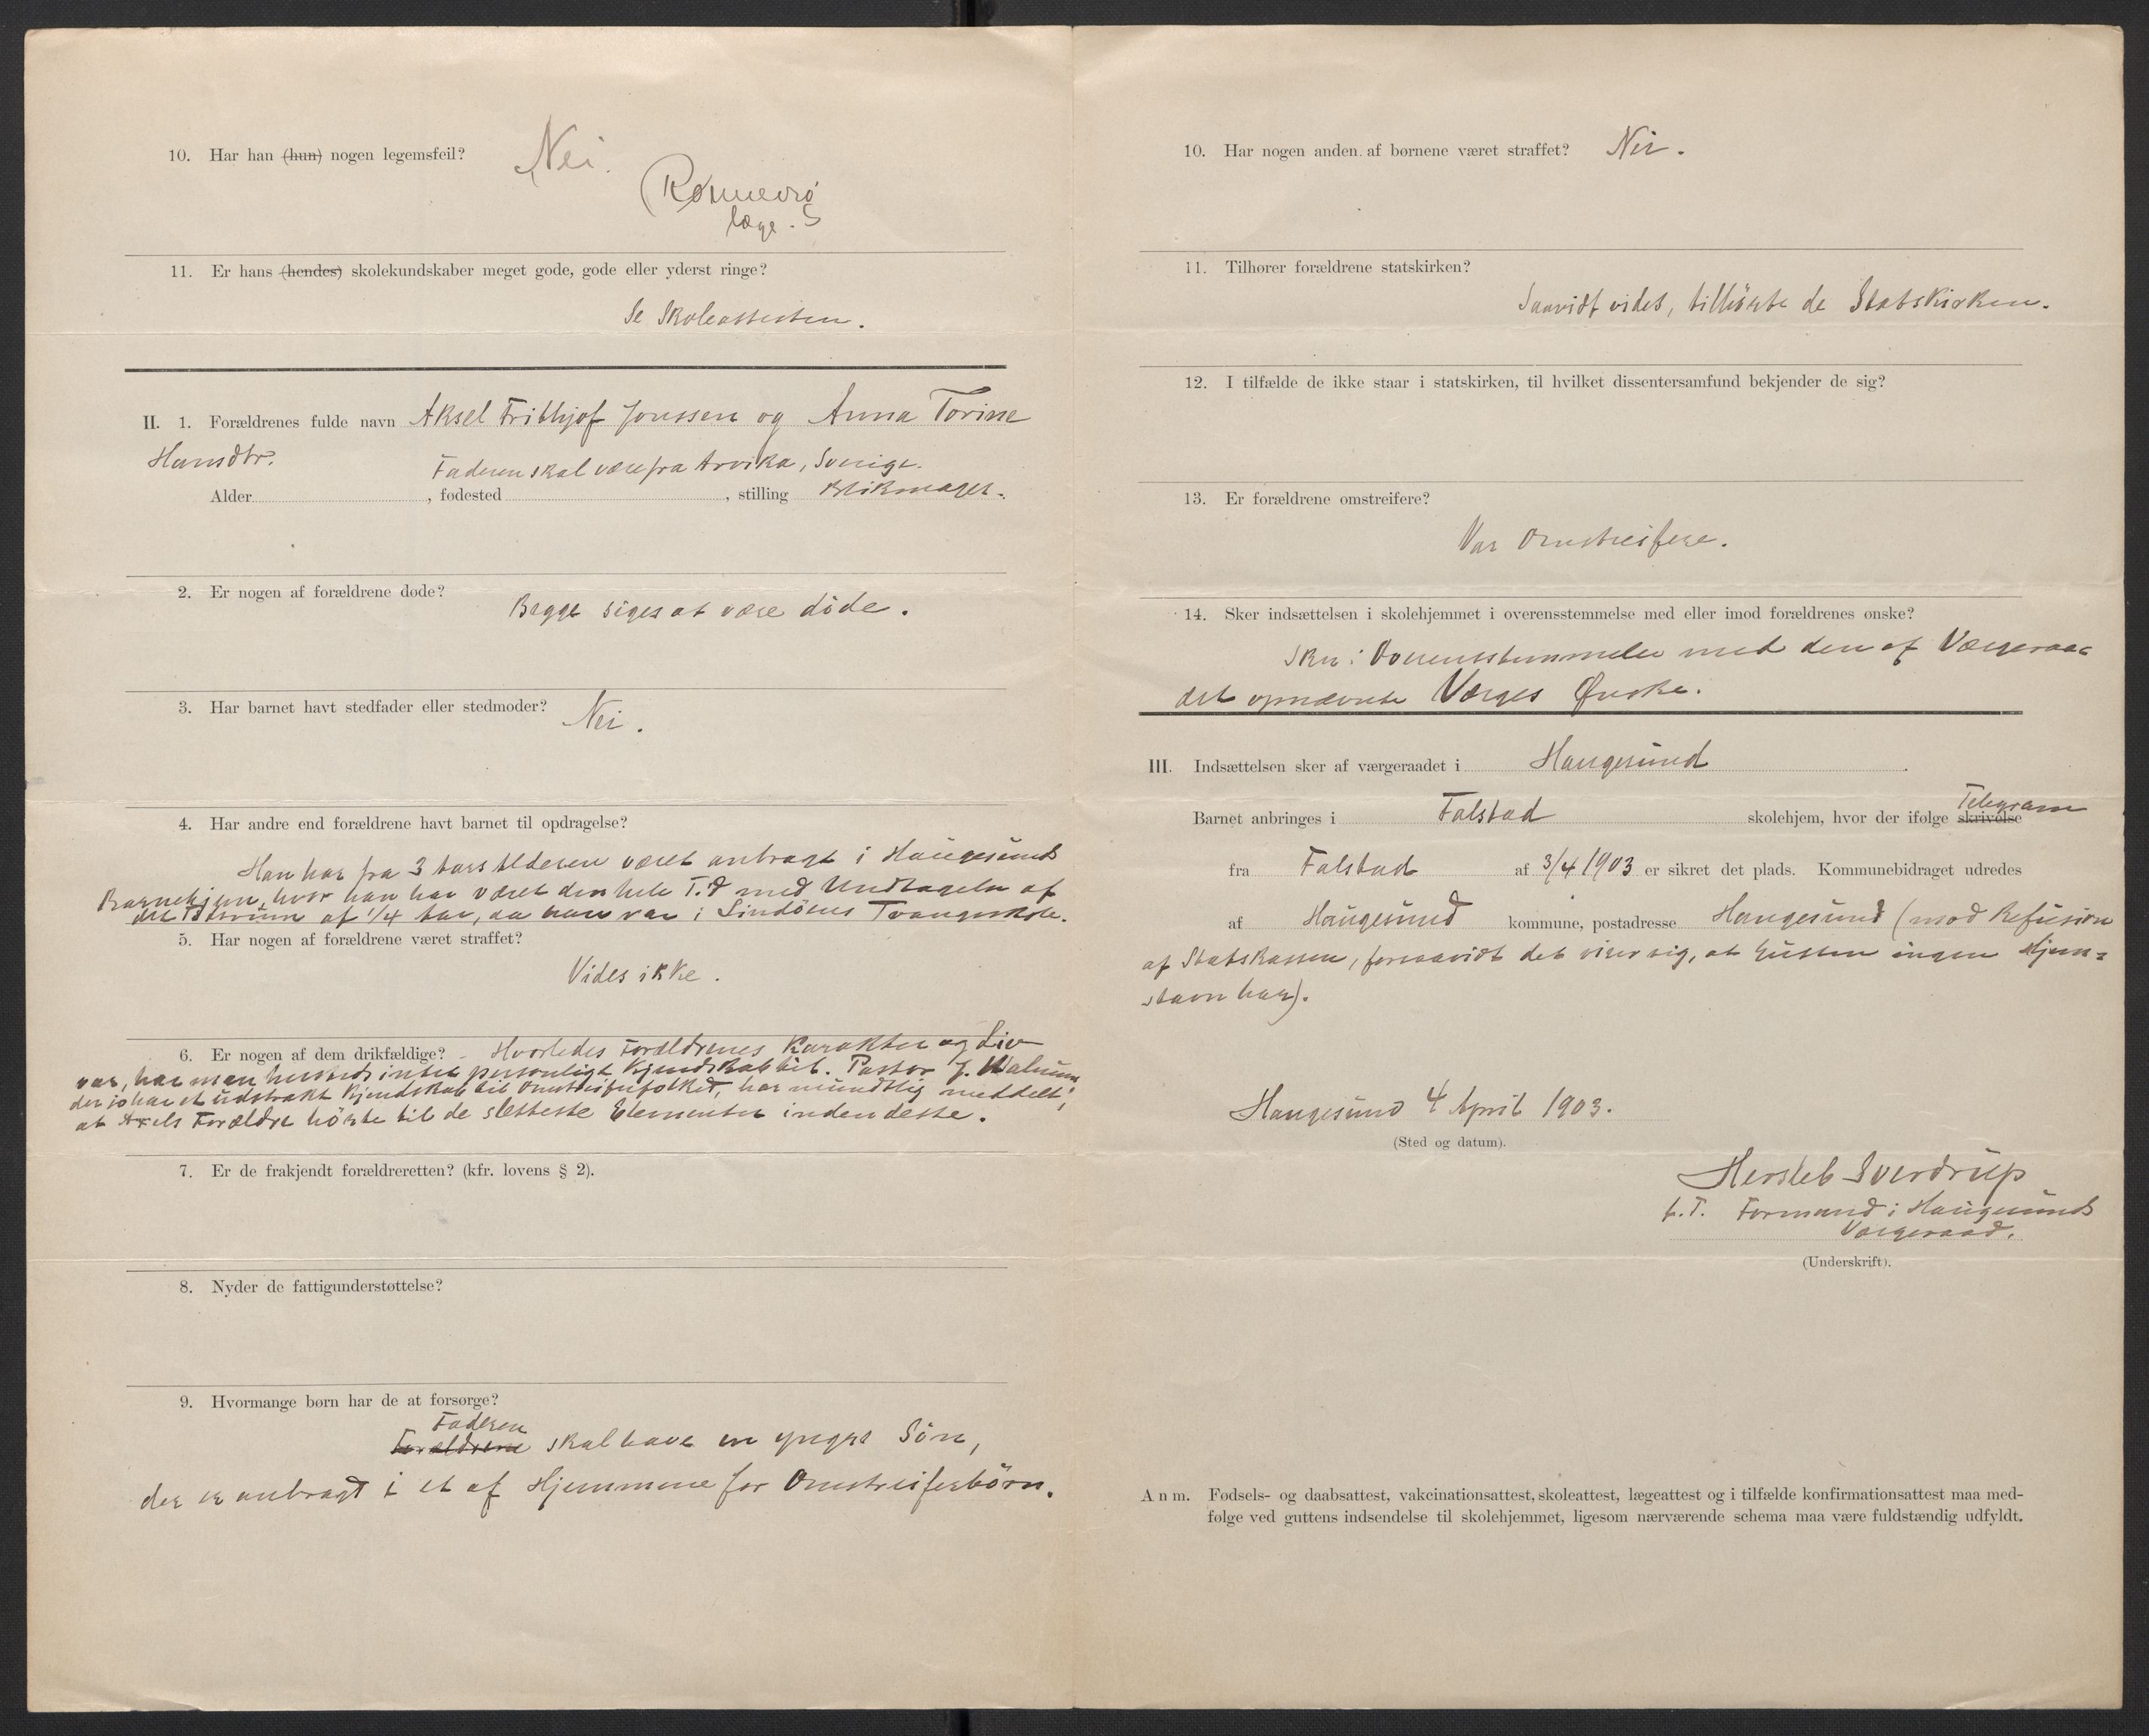 10. Har han (hun) nogen legemsfeil? Nei.
læge.
11. Er hans (hendes) skolekundskaber meget gode, gode eller yderst ringe?
Se Skoleattesten.
II. 1. Forældrenes fulde navn Aksel Frithjof Jonssen og Anna Torine
Hansdtr.
Faderen skal være fra Arvika, Sverige.
Alder , fødested , stilling Blikmager.
2. Er nogen af forældrene døde?
Begge siges at være döde.
3. Har barnet havt stedfader eller stedmoder? Nei.
4. Har andre end forældrene havt barnet til opdragelse?
Han har fra 3 Aars Alderen været anbragt i Haugesunds
Barnehjem, hvor han har været den hele Tid med Undtagelse af
et Tidsrum af 1/4 Aar, da han var i Lindöens Tvangsskole.
5. Har nogen af forældrene været straffet?
Vides ikke.
6. Er nogen af dem drikfældige? Hvorledes Forældrenes Karakter og Liv
var, har man hersteds intet personligt Kjendskab til. Pastor J. Walnum,
der jo har et udstrakt Kjendskab til Omstreiferfolket, har mundtlig meddelt,
at Axels Forældre hörte til de sletteste Elementer inden dette.
7. Er de frakjendt forældreretten? (kfr. lovens § 2).
8. Nyder de fattigunderstøttelse?
9. Hvormange børn har de at forsørge?
Faderen
Forældrene skal have en yngre Sön,
der er anbragt i et af Hjemmene for Omstreiferbörn.
10. Har nogen anden af børnene været straffet? Nei.
11. Tilhører forældrene statskirken?
Saavidt vides, tilhörte de Statskirken.
12. I tilfælde de ikke staar i statskirken, til hvilket dissentersamfund bekjender de sig?
13. Er forældrene omstreifere?
Var Omstreifere.
14. Sker indsættelsen i skolehjemmet i overensstemmelse med eller imod forældrenes ønske?
Sker i Overensstemmelse med den af Værgeraa-
det opnævnte Værges Ønske.
III. Indsættelsen sker af værgeraadet i Haugesund
Telegram
Barnet anbringes i Falstad skolehjem, hvor der ifølge skrivelse
fra Falstad af 3/4 1903 er sikret det plads. Kommunebidraget udredes
af Haugesund kommune, postadresse Haugesund (mod Refusion
af Statskassen, forsaavidt det viser sig, at Gutten ingen Hjem-
stavn har).
Haugesund 4 April 1903.
(Sted og datum).
Hersleb Sverdrup
f.T. Formand i Haugesunds
Værgeraad.
(Underskrift).
Anm. Fødsels- og daabsattest, vakcinationsattest, skoleattest, lægeattest og i tilfælde konfirmationsattest maa med-
følge ved guttens indsendelse til skolehjemmet, ligesom nærværende schema maa være fuldstændig udfyldt.